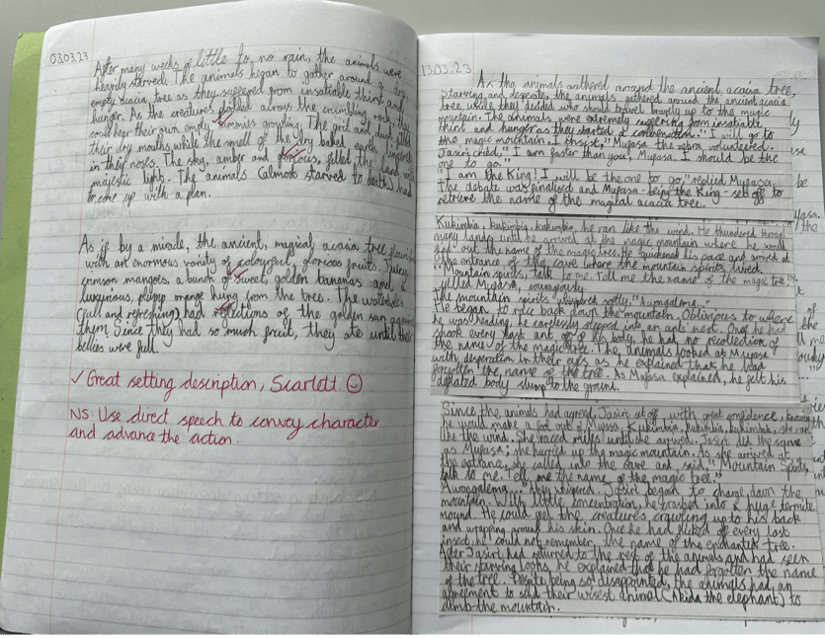 03.03.23
After many weeks of little to no rain, the animals were
heavily starved. The animals began to gather around a dry,
empty acacia tree as they suffered from insatiable thirst and
hunger. As the creatures plodded across the crumbling rock, they
could hear their own empty tummies growling. The grit and dust filled
their dry mouths while the smell of the dry baked earth lingered
in their noses. The sky, amber and glorious, filled the land with
majestic light. The animals (almost starved to death) had
to come up with a plan.
As if by a miracle, the ancient, magical acacia tree flourished
with an enormous variety of colourful, glorious fruits. Juicy
crimson mangoes, a bunch of sweet, golden bananas and a
luxurious, plump mange hung from the tree. The waterholes
(full and refreshing) had reflections of the golden sun against
them. Since they had so much fruit, they ate until their
bellies were full.
✓ Great setting description, Scarlett ☺
NS: Use direct speech to convey character
and advance the action.
13.03.23
As the animals gathered around the ancient acacia tree,
Starving and desperate, the animals gathered around the ancient acacia
tree, while they decided who should travel bravely up to the magic
mountain. The animals were extremely suffering from insatiable
thirst and hunger as they started a conversation. "I will go to
the magic mountain, I insist," Mufasa the zebra, volunteered.
Jasiri cried, "I am faster than you, Mufasa. I should be the
one to go."
"I am the King! I will be the one to go," replied Mufasa.
The debate was finalised and Mufasa - being the King - set off to
retrieve the name of the magical acacia tree.
Kukimbia, kukimbia, kukimbia, he ran like the wind. He thundered through
many lands until he arrived at the magic mountain where he would
find out the name of the magic tree. He quickened his pace and arrived at
the entrance of the cave where the mountain spirits lived.
"Mountain spirits, talk to me. Tell me the name of the magic tree"
yelled Mufasa, courageously.
The mountain spirits whispered softly,
He began to race back down the mountain. Oblivious to where
he was heading, he carelessly stepped into an ants' nest. Once he had
shook every last ant off of his body, he had no recollection of
the name of the magic tree. The animals looked at Mufasa
with desperation in their eyes as he explained that he had
forgotten the name of the tree. As Mufasa explained, he felt his
deflated body slump to the ground.
Since the animals had agreed, Jasiri set off with great confidence, knowing
he would make a fool out of Mufasa. Kukimbia, kukimbia, kukimbia, she ran
like the wind. She raced miles until she arrived. Jasiri did the same
as Mufasa; she hurried up the magic mountain. As she arrived at
the entrance, she called into the cave and said, "Mountain Spirits,
talk to me. Tell me the name of the magic tree."
they whispered. Jasiri began to charge down the
mountain. With little concentration, he crashed into a huge termite
mound. He could feel the creatures, crawling up to his back
and wrapping around his skin. Once he had flicked off every last
insect, he could not remember, the name of the enchanted tree.
After Jasiri had returned to the rest of the animals and had seen
their starving looks, he explained that he had forgotten the name
of the tree. Despite being so disappointed, the animals had an
agreement to send their wisest animal (Akida the elephant) to
climb the mountain.